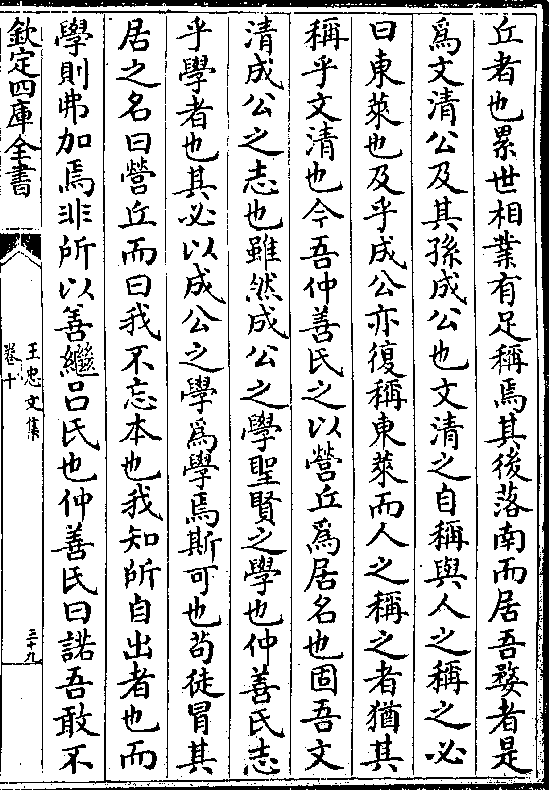 丘者也累世相業有足稱焉其後落南而居吾婺者是
為文清公及其孫成公也文清之自稱與人之稱之必
曰東萊也及乎成公亦復稱東萊而人之稱之者猶其
稱乎文清也今吾仲善氏之以營丘為居名也固吾文
清成公之志也雖然成公之學聖賢之學也仲善氏志
乎學者也其必以成公之學為學焉斯可也苟徒冒其
居之名曰營丘而曰我不忘本也我知所自出者也而
學則弗加焉非所以善繼吕氏也仲善氏曰諾吾敢不
欽定四庫全書
王忠文集
卷十
三十九